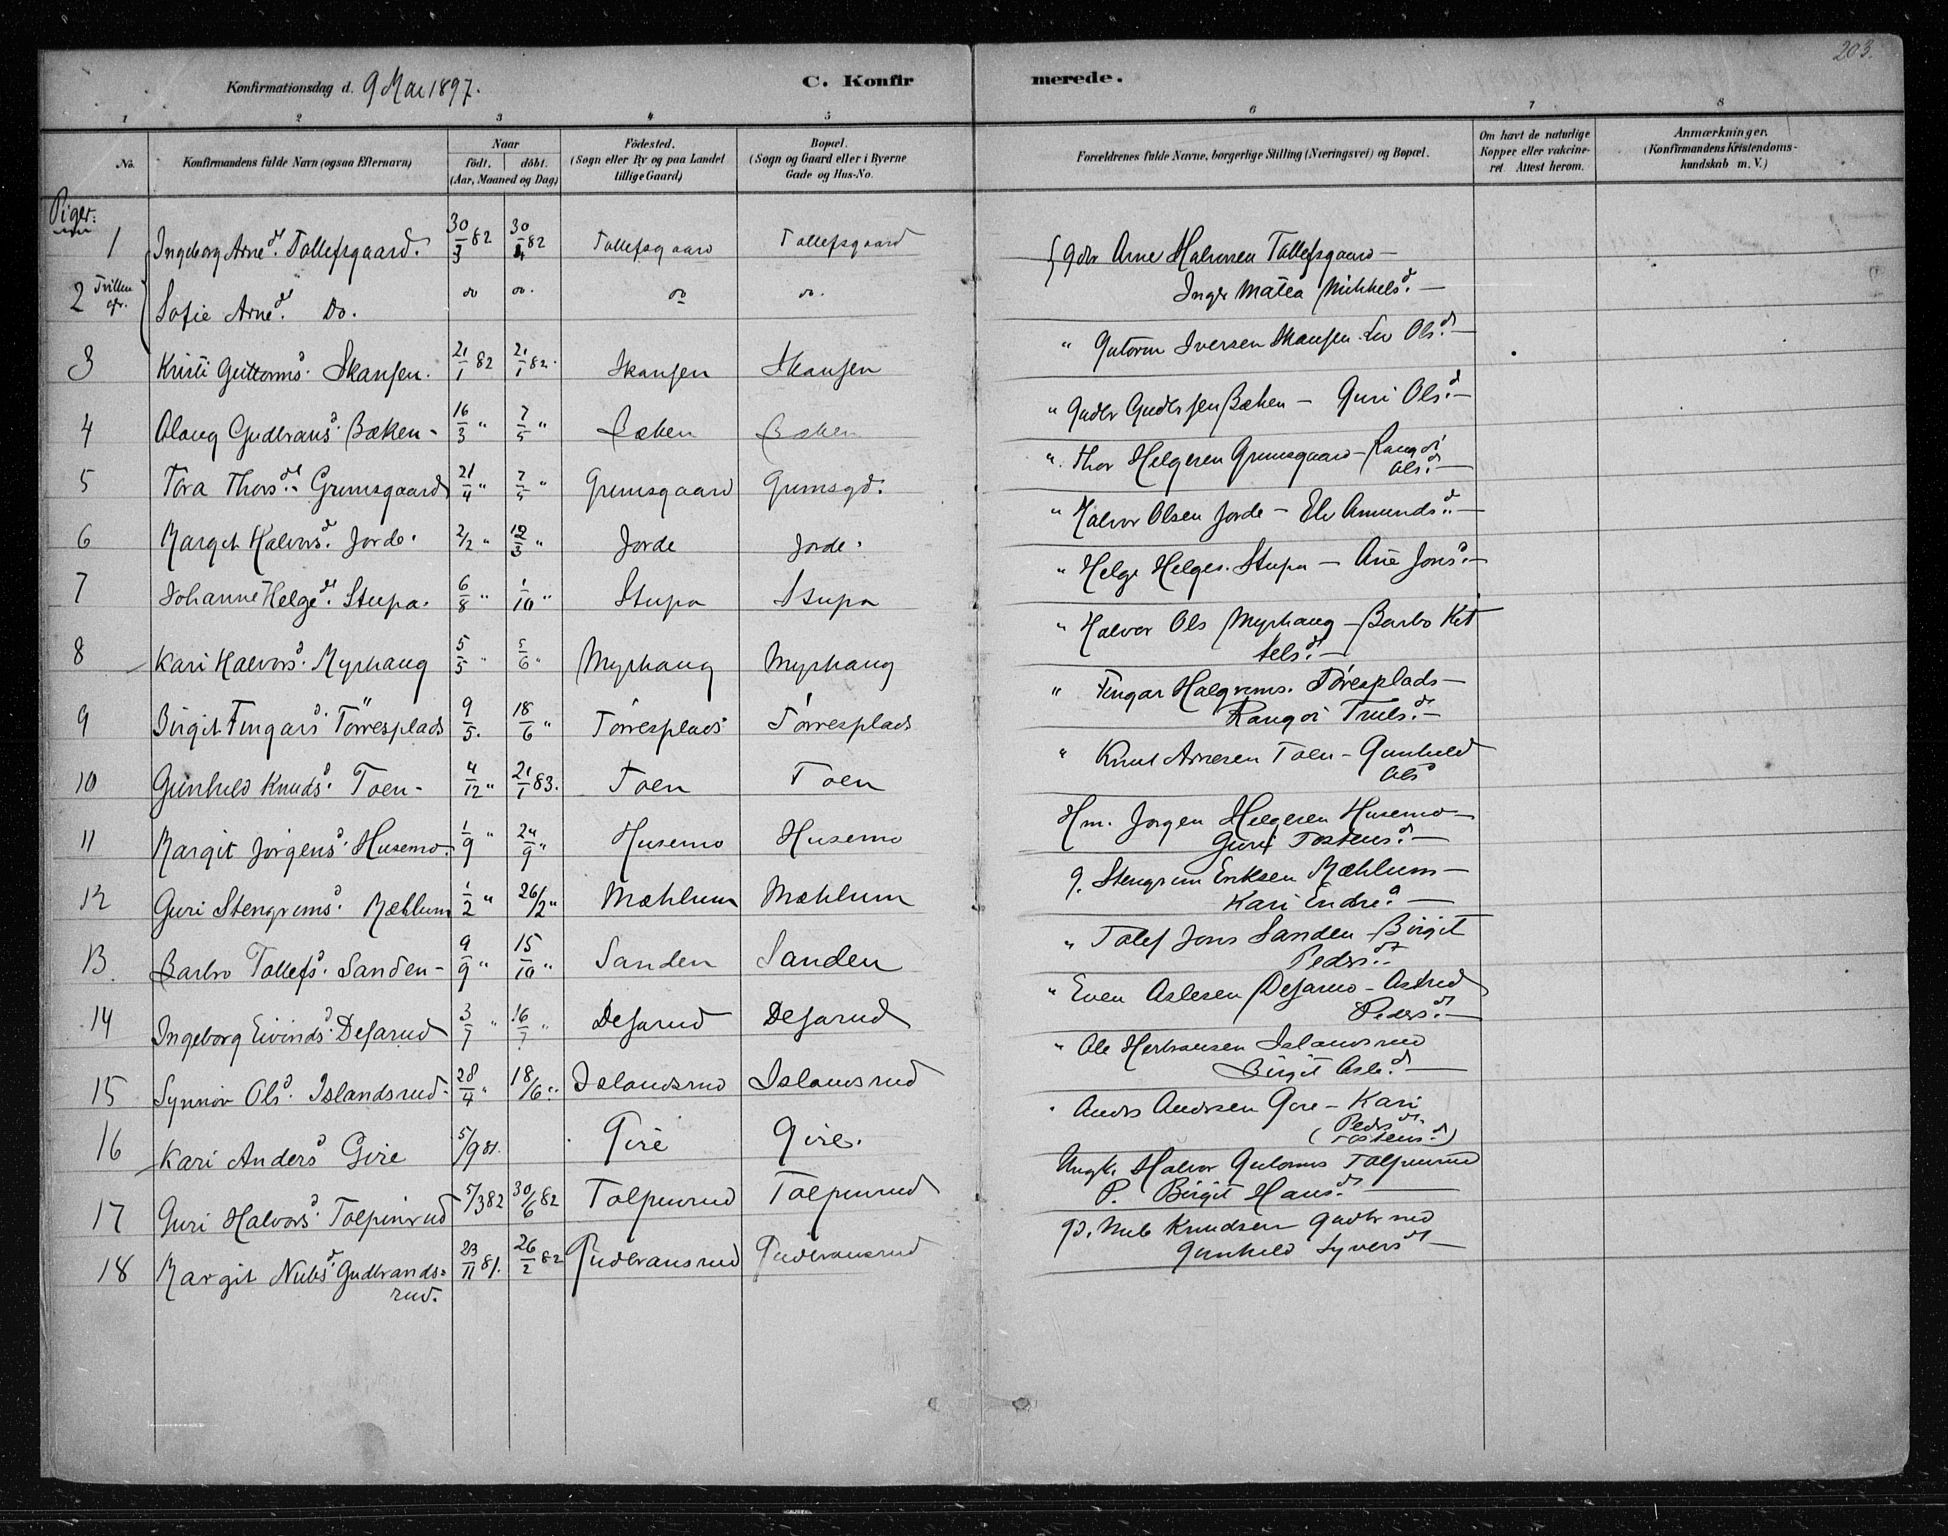 203.
Konfirmationsdag d. 9 Mai 1897. C. Konfirmerede.
1 2 3 4 5 6 7 8
No. Konfirmandens fulde Navn (ogsaa Efternavn) Naar födt. döbt. (Aar, Maaned og Dag) Födested. (Sogn eller By og paa Landet tillige Gaard) Bopæl. (Sogn og Gaard eller i Byerne Gade og Hus-No. Forældrenes fulde Navne, borgerlige Stilling (Næringsvei) og Bopæl. Om havt de naturlige Kopper eller vakcineret Attest herom. Anmærkninger. (Konfirmandens Kristendomskundskab m. V.)
Piger:
1 Ingeborg Arned. Tollefsgaard. 30/3 82 30/4 82 Tollefsgaard Tollefsgaard Gdbr Arne Halvorsen Tollefsgaard —
2 Tvillinger. Sofie Arned. Do. do do. do do. Inger Matea Mikkelsd. —
3 Kristi Guttormsd. Skansen. 21/1 82 21/1 82. Skansen Skansen " Gutorm Iversen Skansen. Liv Olsd. —
4 Olaug Gudbransd. Bæken - 16/3 " 7/5 " Bæken Bæken " Gudbr Gudbrsen Bæken — Guri Olsd. —
5 Tora Thorsd. Grimsgaard 21/4 " 7/5 " Grimsgaard Grimsgd. " Thor Helgesen Grimsgaard — Rangdi
Olsd. —
6 Margit Halvorsd. Jorde. 2/2 " 12/3 " Jorde Jorde. " Halvor Olsen Jorde — Eli Amundsd. —
7 Johanne Helged. Stupa. 6/8 " 1/10 " Stupa Stupa " Helge Helges. Stupa — Ane Jonsd. —
8 Kari Halvorsd. Myrhaug 5/5 " 5/6 " Myrhaug Myrhaug " Halvor Ols Myrhaug — Barbo Kit
telsd. —
9 Birgit Fingarsd. Törresplads 9/5. 18/6 " Törresplads Törresplads " Fingar Halgrims. Töresplads —
Rangdi Truelsd. —
10 Gunhild Knudsd. Toen - 4/12 " 21/1 83. Toen Toen " Knut Arnesen Toen — Gunhild
Olsd
11 Margit Jörgensd. Husemo. 1/9 " 24/9 " Husemo Husemo Hm. Jorgen Helgesen Husemo —
Guri Tostensd. —
12 Guri Stengrimsd. Mæhlum 1/2 " 26/2 " Mæhlum Mæhlum G. Stengrim Eriksen Mæhlum —
Kari Endred. —
13. Barbro Tollefsd. Sanden - 9/9 " 15/10 " Sanden Sanden " Tolef Jons Sanden — Birgit
Pedersd.
14 Ingeborg Eivindsd. Desarud 3/7 " 16/7 " Desarud Desarud " Even Aslesen Desarud — Astrid
Pedersd. —
15 Synnöv Olsd. Islandsrud - 28/4 " 18/6 " Islandsrud Islandsrud " Ole Herbransen Islandsrud
Birgit Asled. —
16 Kari Andersd Gire 5/9 81. Gire Gire. Anders Andersen Gire — Kari
Pedersd
(Tostensd.)
17 Guri Halvorsd. Tolpinrud 5/3 82 30/6 82 Tolpinrud Tolpinrud Ungk. Halvor Gutorms Tolpinrud
P. Birgit Hansd. —
18 Margit Nubsd. Gudbrands- 23/11 81. 26/2 82 Gudbransrud Gudbransrud Nub Knudsen Gudbrrud
rud. Gunhild Syversd —